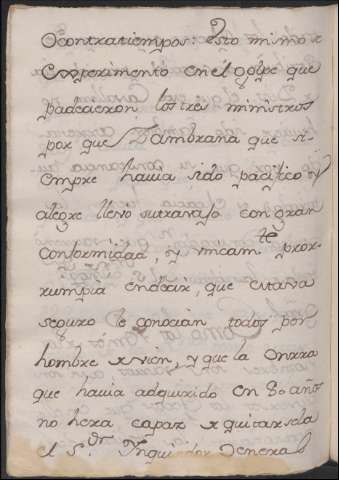 Ocontratiempos: esto mismo se
Experimentó en el golpe que
padecieron los tres ministros
por que Zambrana que si-
empre havia sido pacifico y
alegre llevó su travajo con gran
Conformidad, y unicam.te pror-
rumpia en decir, que estava
seguro le conocian todos por
hombre de vien, y que la Onrra
que havia adquirido en 80 años
no hera capaz de quitarsela
el s.or Ynquisidor General